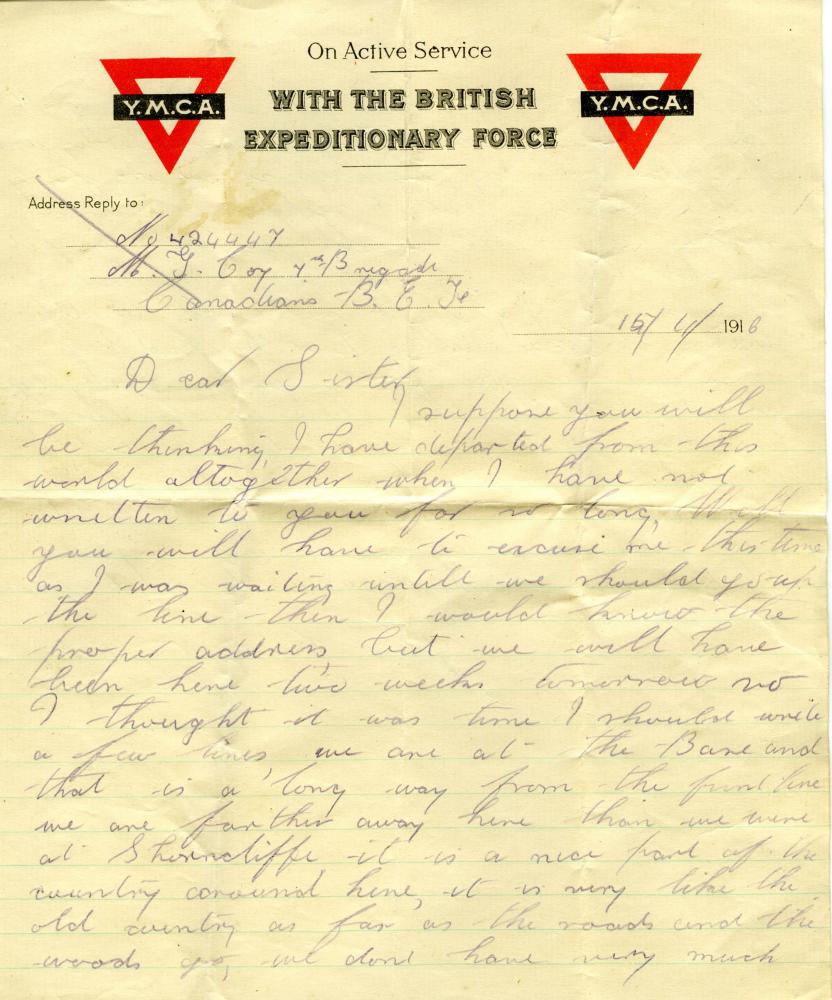 On Active Service
WITH THE BRITISH
EXPEDITIONARY FORCE
Y.M.C.A.
Y.M.C.A.
Address Reply to:
No 424447
M. G. Coy 7th Brigade
Canadians B. E. F.
15/4/ 1916
Dear Sister
I suppose you will
be thinking I have departed from this
world altogether when I have not
written to you for so long, Well
you will have to excuse me this time
as I was waiting untill we should go up
the line then I would know the
proper address, but we will have
been here two weeks tomorrow so
I thought it was time I should write
a few lines, we are at the Base and
that is a long way from the line
we are farther away here than we were
at Shorncliffe, it is a nice part of the
country around here, it is very like the
old country as far as the roads and the
woods go, we dont have very much